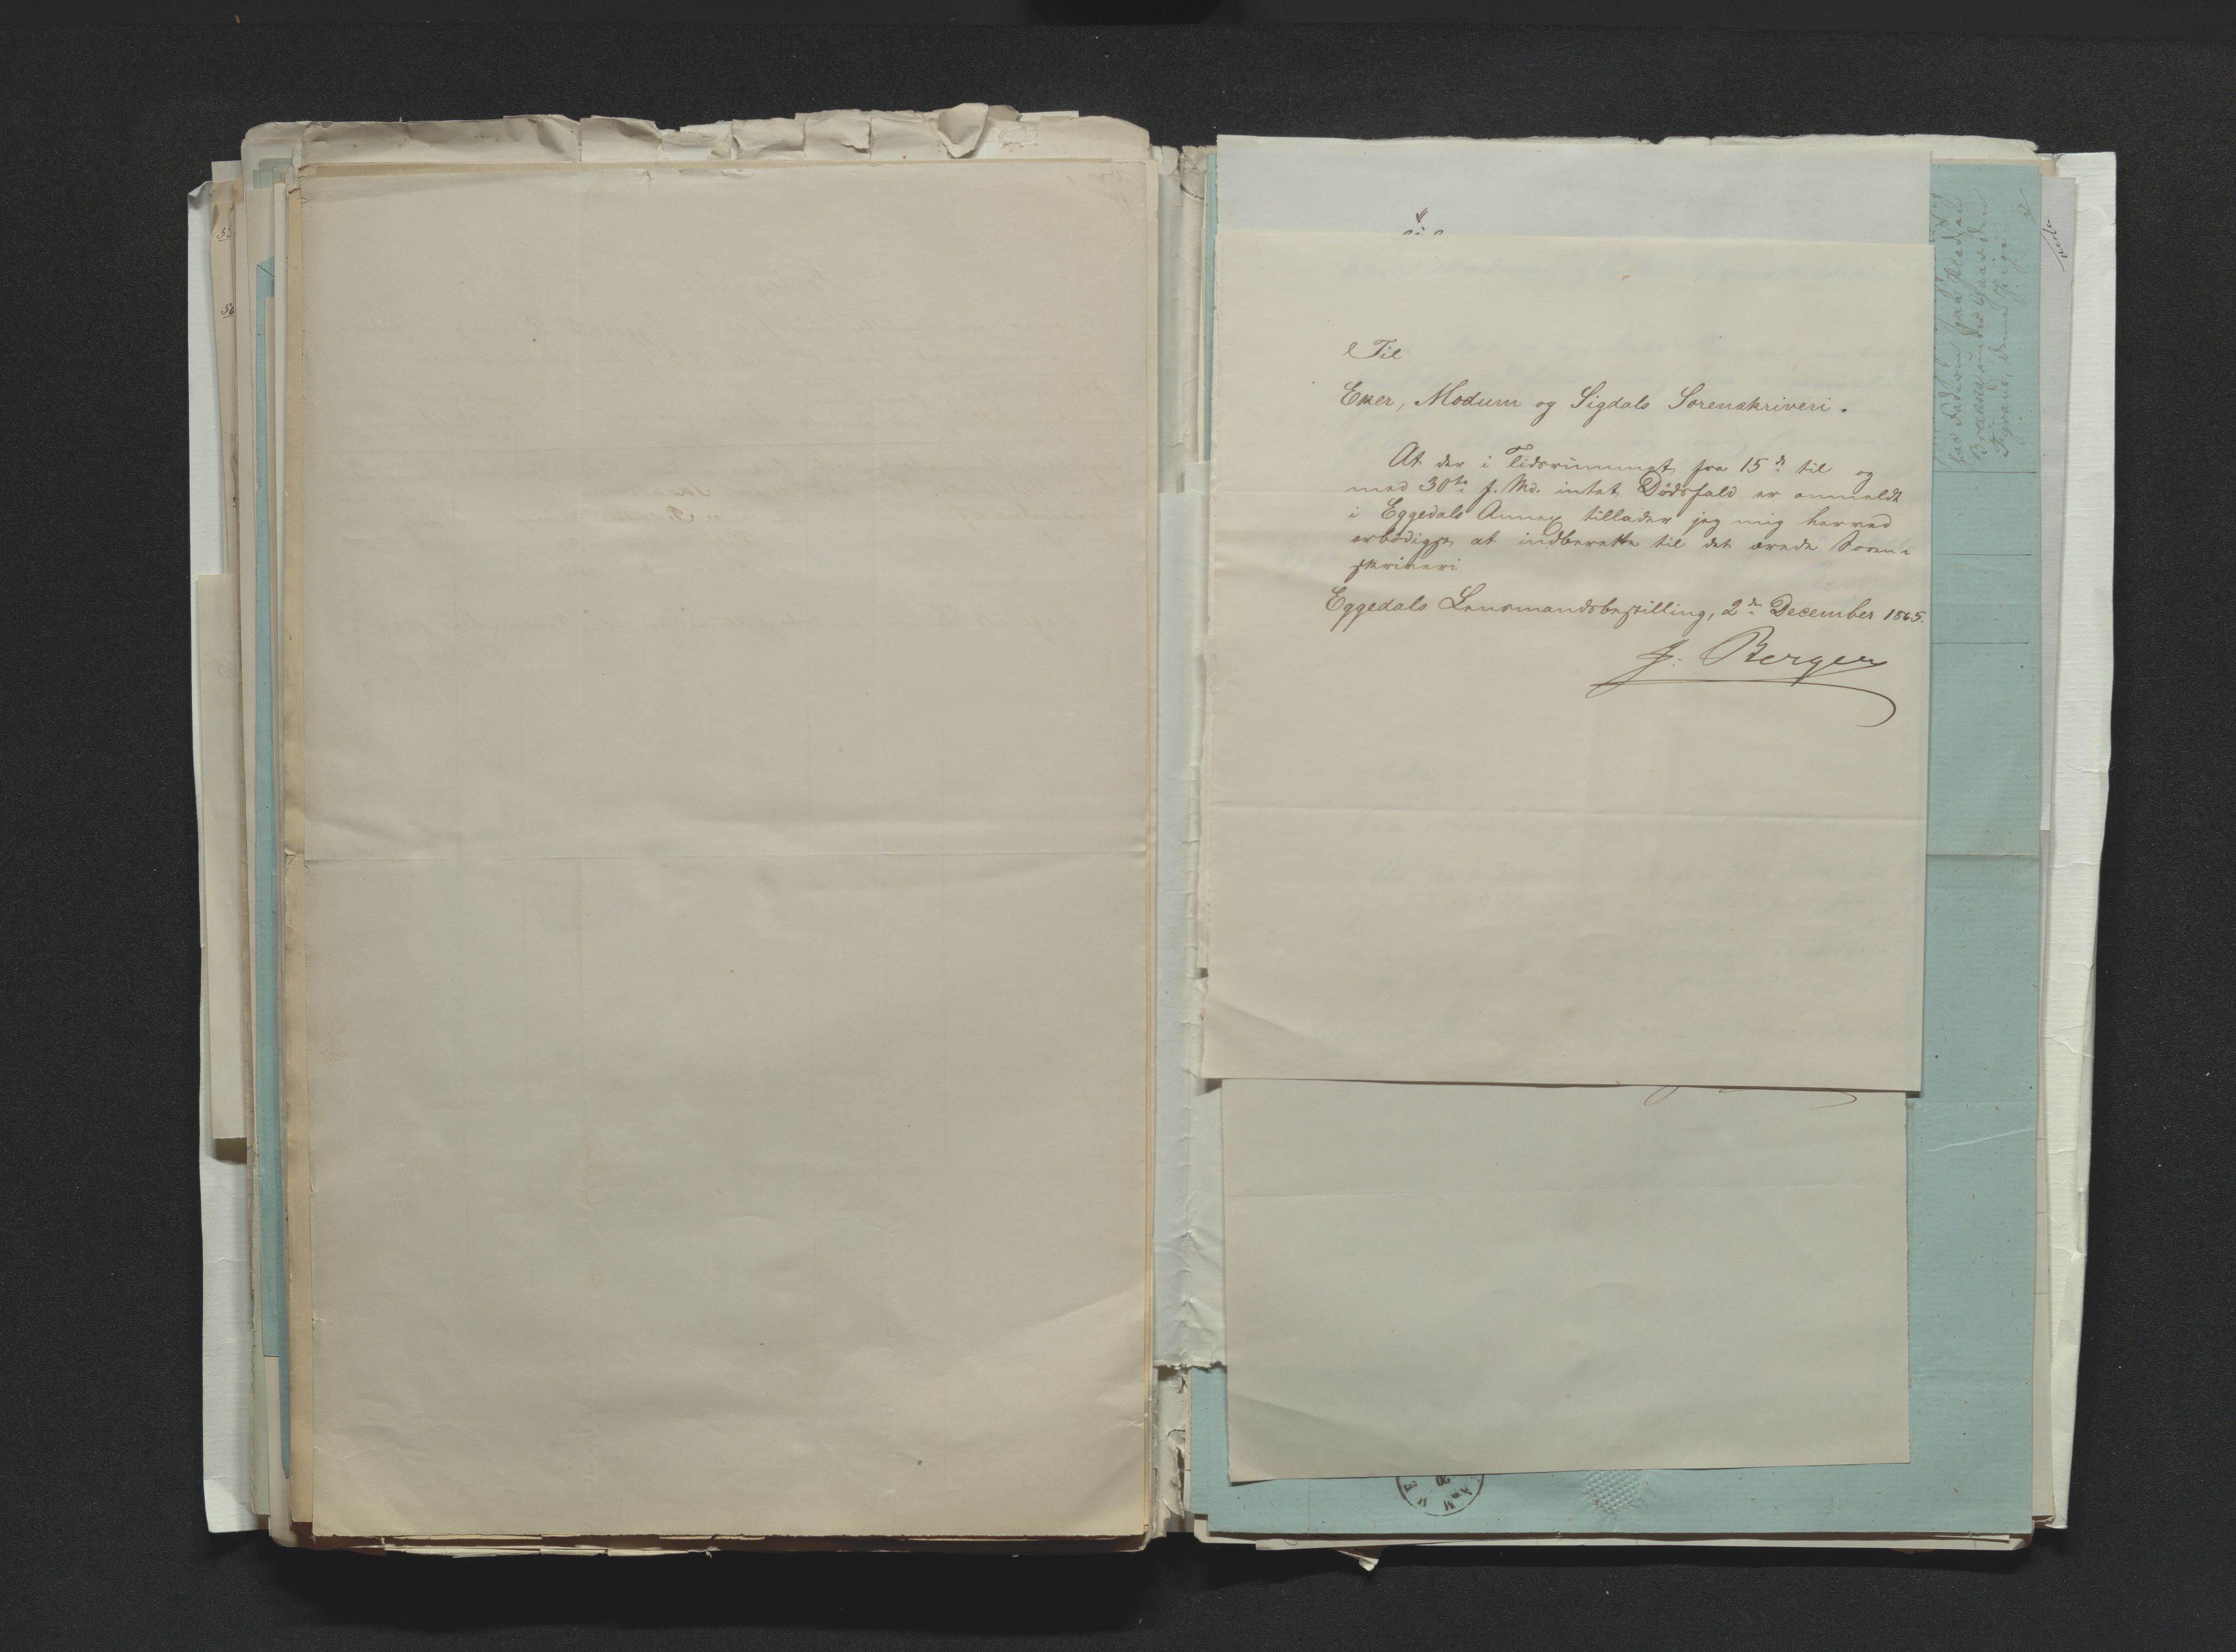 Til
Eker, Modum og Sigdals Sorenskriveri.
At der i Tidsrummet fra 15de til og
med 30te f. Md. intet Dødsfald er anmeldt
i Eggedals Annex tillader jeg mig herved
ærbødigst at indberette til det ærede Soren-
skriveri
Eggedals Lensmandsbestilling, 2den December 1865.
J. Bergen